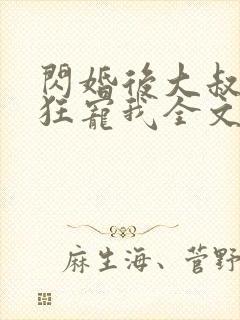 閃婚後大叔
狂寵我全文
麻生海、菅野